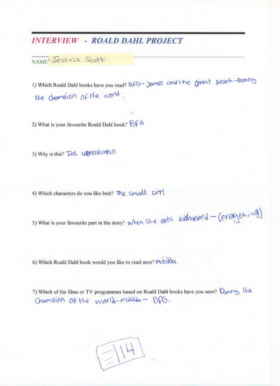 INTERVIEW - ROALD DAHL PROJECT
NAME:
1) Which Roald Dahl books have you read? BFG - James and the giant peach - Danny
the champion of the world.
2) What is your favourite Roald Dahl book? BFG
3) Why is this?
4) Which characters do you like best? The small girl
5) What is your favourite part in the story? When she gets
6) Which Roald Dahl book would you like to read next? Matilda
7) Which of the films or TV programmes based on Roald Dahl books have you seen? Danny the
champion of the world - Matilda - BFG.
14